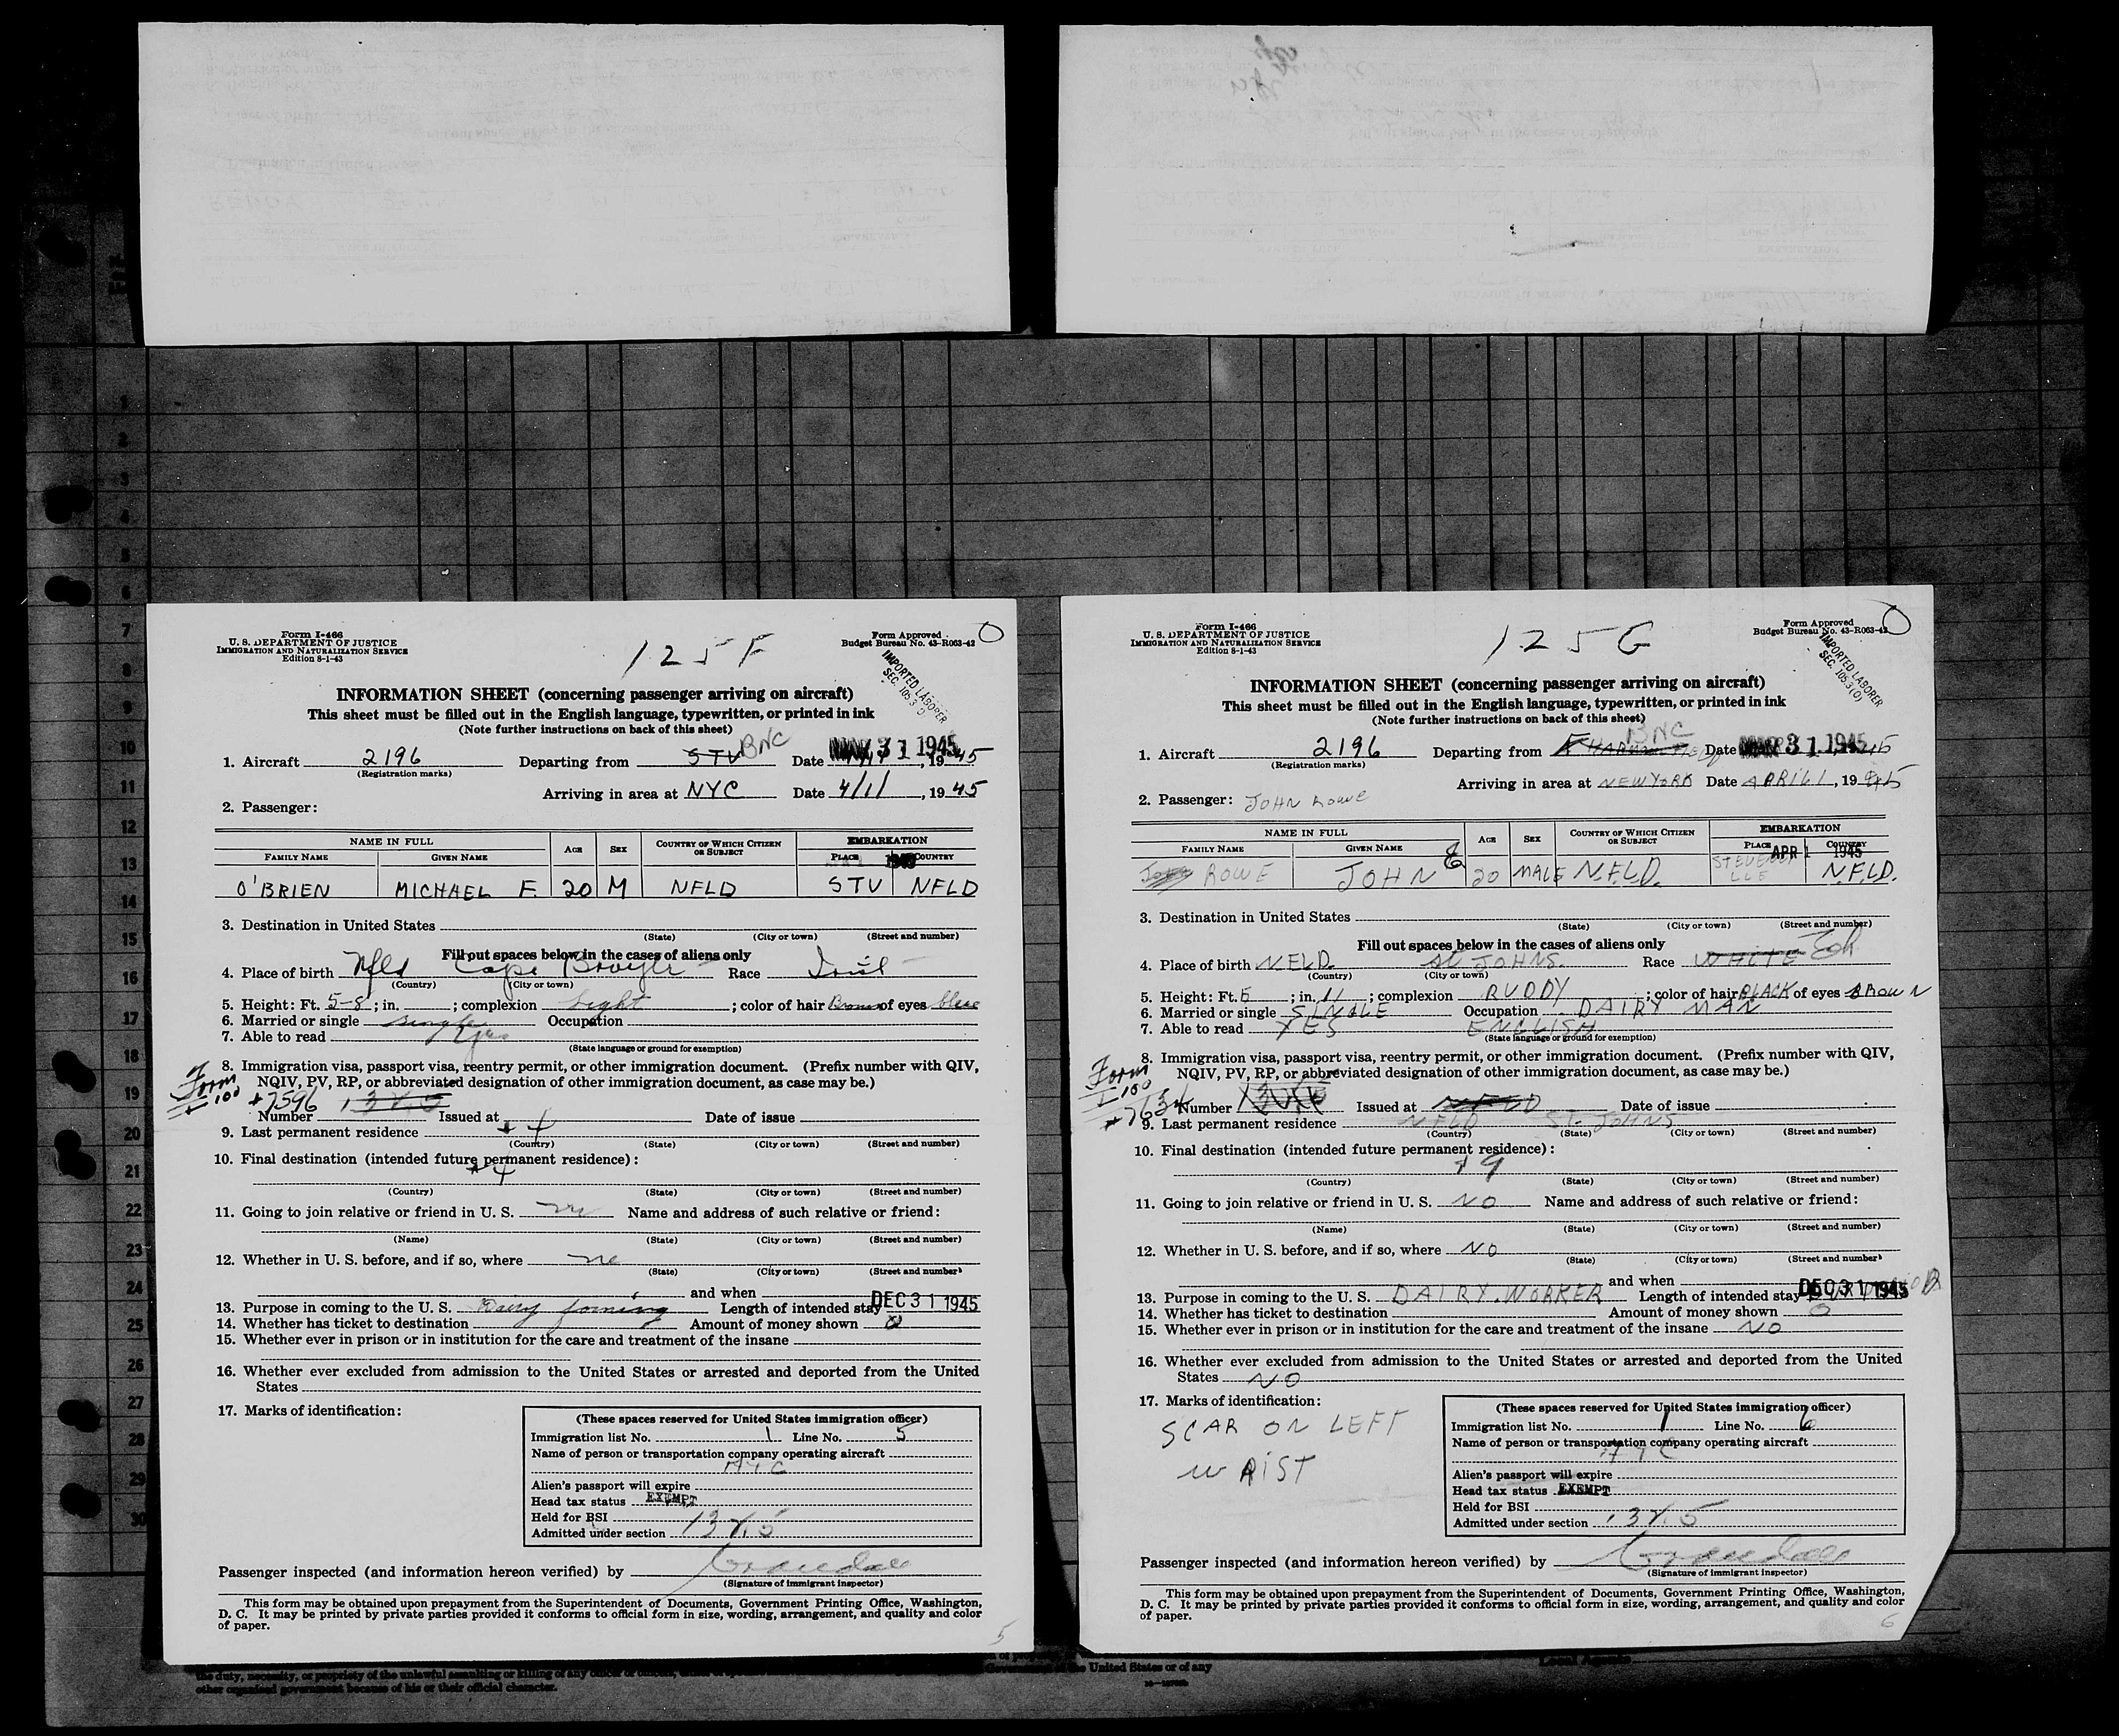 Form I-466
U. S. DEPARTMENT OF JUSTICE
IMMIGRATION AND NATURALIZATION SERVICE
Edition 8-1-43
125F
Form Approved
Budget Bureau No. 43-R063-42
IMPORTED LABORER
SEC. 105.3
INFORMATION SHEET (concerning passenger arriving on aircraft)
This sheet must be filled out in the English language, typewritten, or printed in ink
(Note further instructions on back of this sheet)
1. Aircraft 2196 Departing from STV BNC Date MAR 31 1945, 1945
(Registration marks)
Arriving in area at NYC Date 4/1/, 1945
2. Passenger:
NAME IN FULL AGE SEX COUNTRY OF WHICH CITIZEN OR SUBJECT EMBARKATION
FAMILY NAME GIVEN NAME PLACE COUNTRY
O'BRIEN MICHAEL F. 20 M NFLD STV NFLD
3. Destination in United States
(State) (City or town) (Street and number)
Fill out spaces below in the cases of aliens only
4. Place of birth Nfld Cape Broyle Race Irish
(Country) (City or town)
5. Height: Ft. 5-8; in. ; complexion Light; color of hair Brown of eyes blue
6. Married or single single Occupation
7. Able to read Yes
(State language or ground for exemption)
8. Immigration visa, passport visa, reentry permit, or other immigration document. (Prefix number with QIV,
NQIV, PV, RP, or abbreviated designation of other immigration document, as case may be.)
Form
I-100
7596
Number Issued at Date of issue
9. Last permanent residence
(Country) (State) (City or town) (Street and number)
10. Final destination (intended future permanent residence):
(Country) (State) (City or town) (Street and number)
11. Going to join relative or friend in U. S. no Name and address of such relative or friend:
(Name) (State) (City or town) (Street and number)
12. Whether in U. S. before, and if so, where no
(State) (City or town) (Street and number)
and when
13. Purpose in coming to the U. S. Dairy farming Length of intended stay DEC 31 1945
14. Whether has ticket to destination Amount of money shown 0
15. Whether ever in prison or in institution for the care and treatment of the insane
16. Whether ever excluded from admission to the United States or arrested and deported from the United
States
17. Marks of identification:
(These spaces reserved for United States immigration officer)
Immigration list No. 1 Line No. 5
Name of person or transportation company operating aircraft
Alien's passport will expire
Head tax status EXEMPT
Held for BSI
Admitted under section
Passenger inspected (and information hereon verified) by
(Signature of immigrant inspector)
This form may be obtained upon prepayment from the Superintendent of Documents, Government Printing Office, Washington,
D. C. It may be printed by private parties provided it conforms to official form in size, wording, arrangement, and quality and color
of paper.
5
Form I-466
U. S. DEPARTMENT OF JUSTICE
IMMIGRATION AND NATURALIZATION SERVICE
Edition 8-1-43
125G
Form Approved
Budget Bureau No. 43-R063-42
IMPORTED LABORER
SEC. 105.3 (0)
INFORMATION SHEET (concerning passenger arriving on aircraft)
This sheet must be filled out in the English language, typewritten, or printed in ink
(Note further instructions on back of this sheet)
1. Aircraft 2196 Departing from BNC Date MAR 31 1945
(Registration marks)
Arriving in area at NEW YORK Date APRIL 1, 1945
2. Passenger: JOHN ROWE
NAME IN FULL AGE SEX COUNTRY OF WHICH CITIZEN OR SUBJECT EMBARKATION
FAMILY NAME GIVEN NAME PLACE COUNTRY
APR 1 1945
ROWE JOHN 20 MALE N.F.L.D. N.F.L.D.
3. Destination in United States
(State) (City or town) (Street and number)
Fill out spaces below in the cases of aliens only
4. Place of birth N.F.L.D. St JOHNS. Race WHITE
(Country) (City or town)
5. Height: Ft. 5; in. 11; complexion RUDDY; color of hair BLACK of eyes BROWN
6. Married or single SINGLE Occupation DAIRY MAN
7. Able to read YES ENGLISH
(State language or ground for exemption)
8. Immigration visa, passport visa, reentry permit, or other immigration document. (Prefix number with QIV,
NQIV, PV, RP, or abbreviated designation of other immigration document, as case may be.)
Form
I-100
7634
Number Issued at NFLD Date of issue
9. Last permanent residence NFLD ST. JOHNS
(Country) (State) (City or town) (Street and number)
10. Final destination (intended future permanent residence):
(Country) (State) (City or town) (Street and number)
11. Going to join relative or friend in U. S. NO Name and address of such relative or friend:
(Name) (State) (City or town) (Street and number)
12. Whether in U. S. before, and if so, where NO
(State) (City or town) (Street and number)
and when
13. Purpose in coming to the U. S. DAIRY WORKER Length of intended stay DEC 31 1945
14. Whether has ticket to destination Amount of money shown 0
15. Whether ever in prison or in institution for the care and treatment of the insane NO
16. Whether ever excluded from admission to the United States or arrested and deported from the United
States NO
17. Marks of identification:
SCAR ON LEFT
WRIST
(These spaces reserved for United States immigration officer)
Immigration list No. 1 Line No. 6
Name of person or transportation company operating aircraft
Alien's passport will expire
Head tax status EXEMPT
Held for BSI
Admitted under section
Passenger inspected (and information hereon verified) by
(Signature of immigrant inspector)
This form may be obtained upon prepayment from the Superintendent of Documents, Government Printing Office, Washington,
D. C. It may be printed by private parties provided it conforms to official form in size, wording, arrangement, and quality and color
of paper.
6
other organized government because of his or their official character.